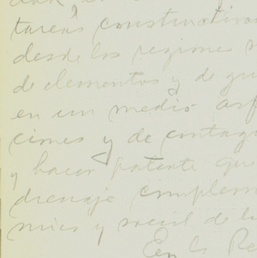 tareas constructivas
desde las regiones
de elementos y de gu
en un medio asf
ciones y de contag
y hacer patente que
drenaje complem
mico y social de la
En la Re